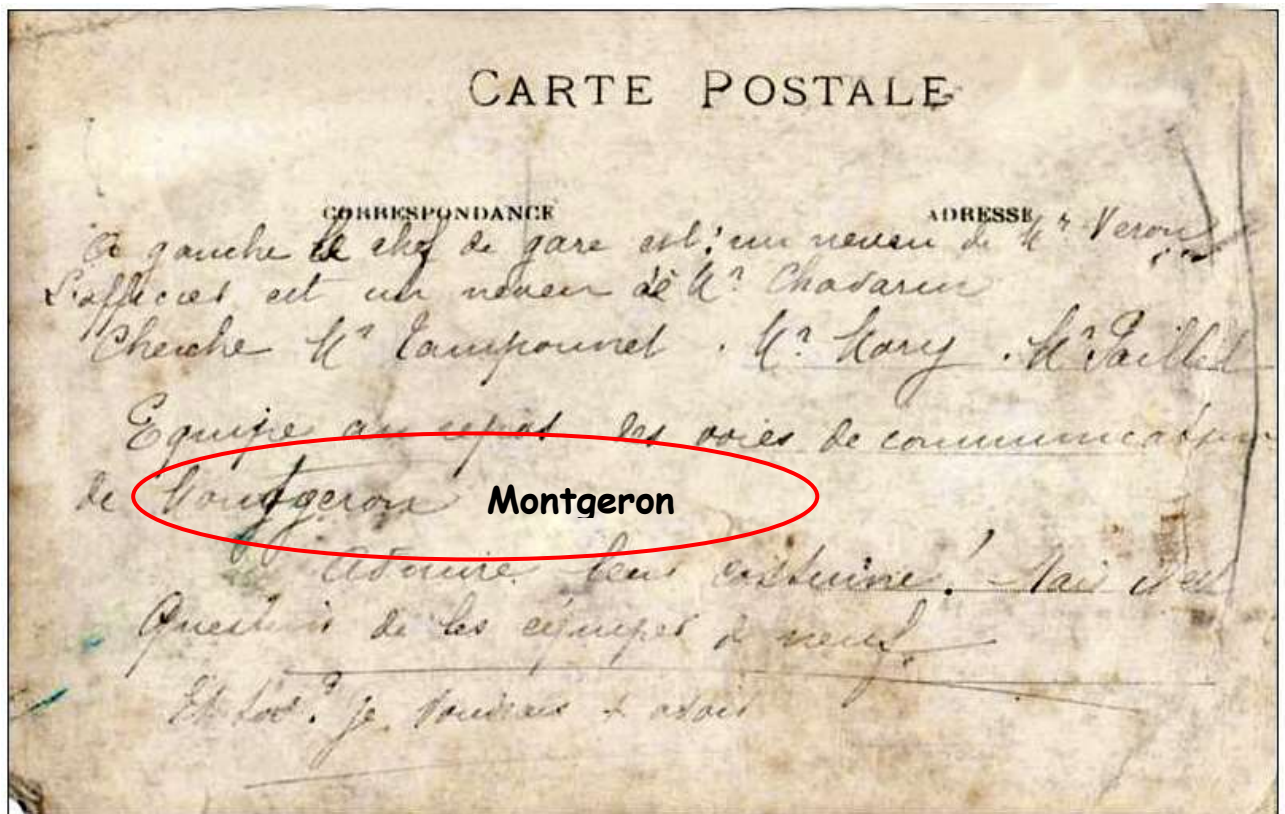 CARTE POSTALE
CORRESPONDANCE ADRESSE
A gauche le chef de gare est: un neveu de Mr Veron
L'officier est un neveu de Mr Chavaren
Cherche Mr Tamponnet. Mr Mory. Mr Paillet
Equipe au repos des voies de communication
de Montgeron Montgeron
Admire leur costume! Mais il est
Question de les équiper à neuf.
Et toi? je